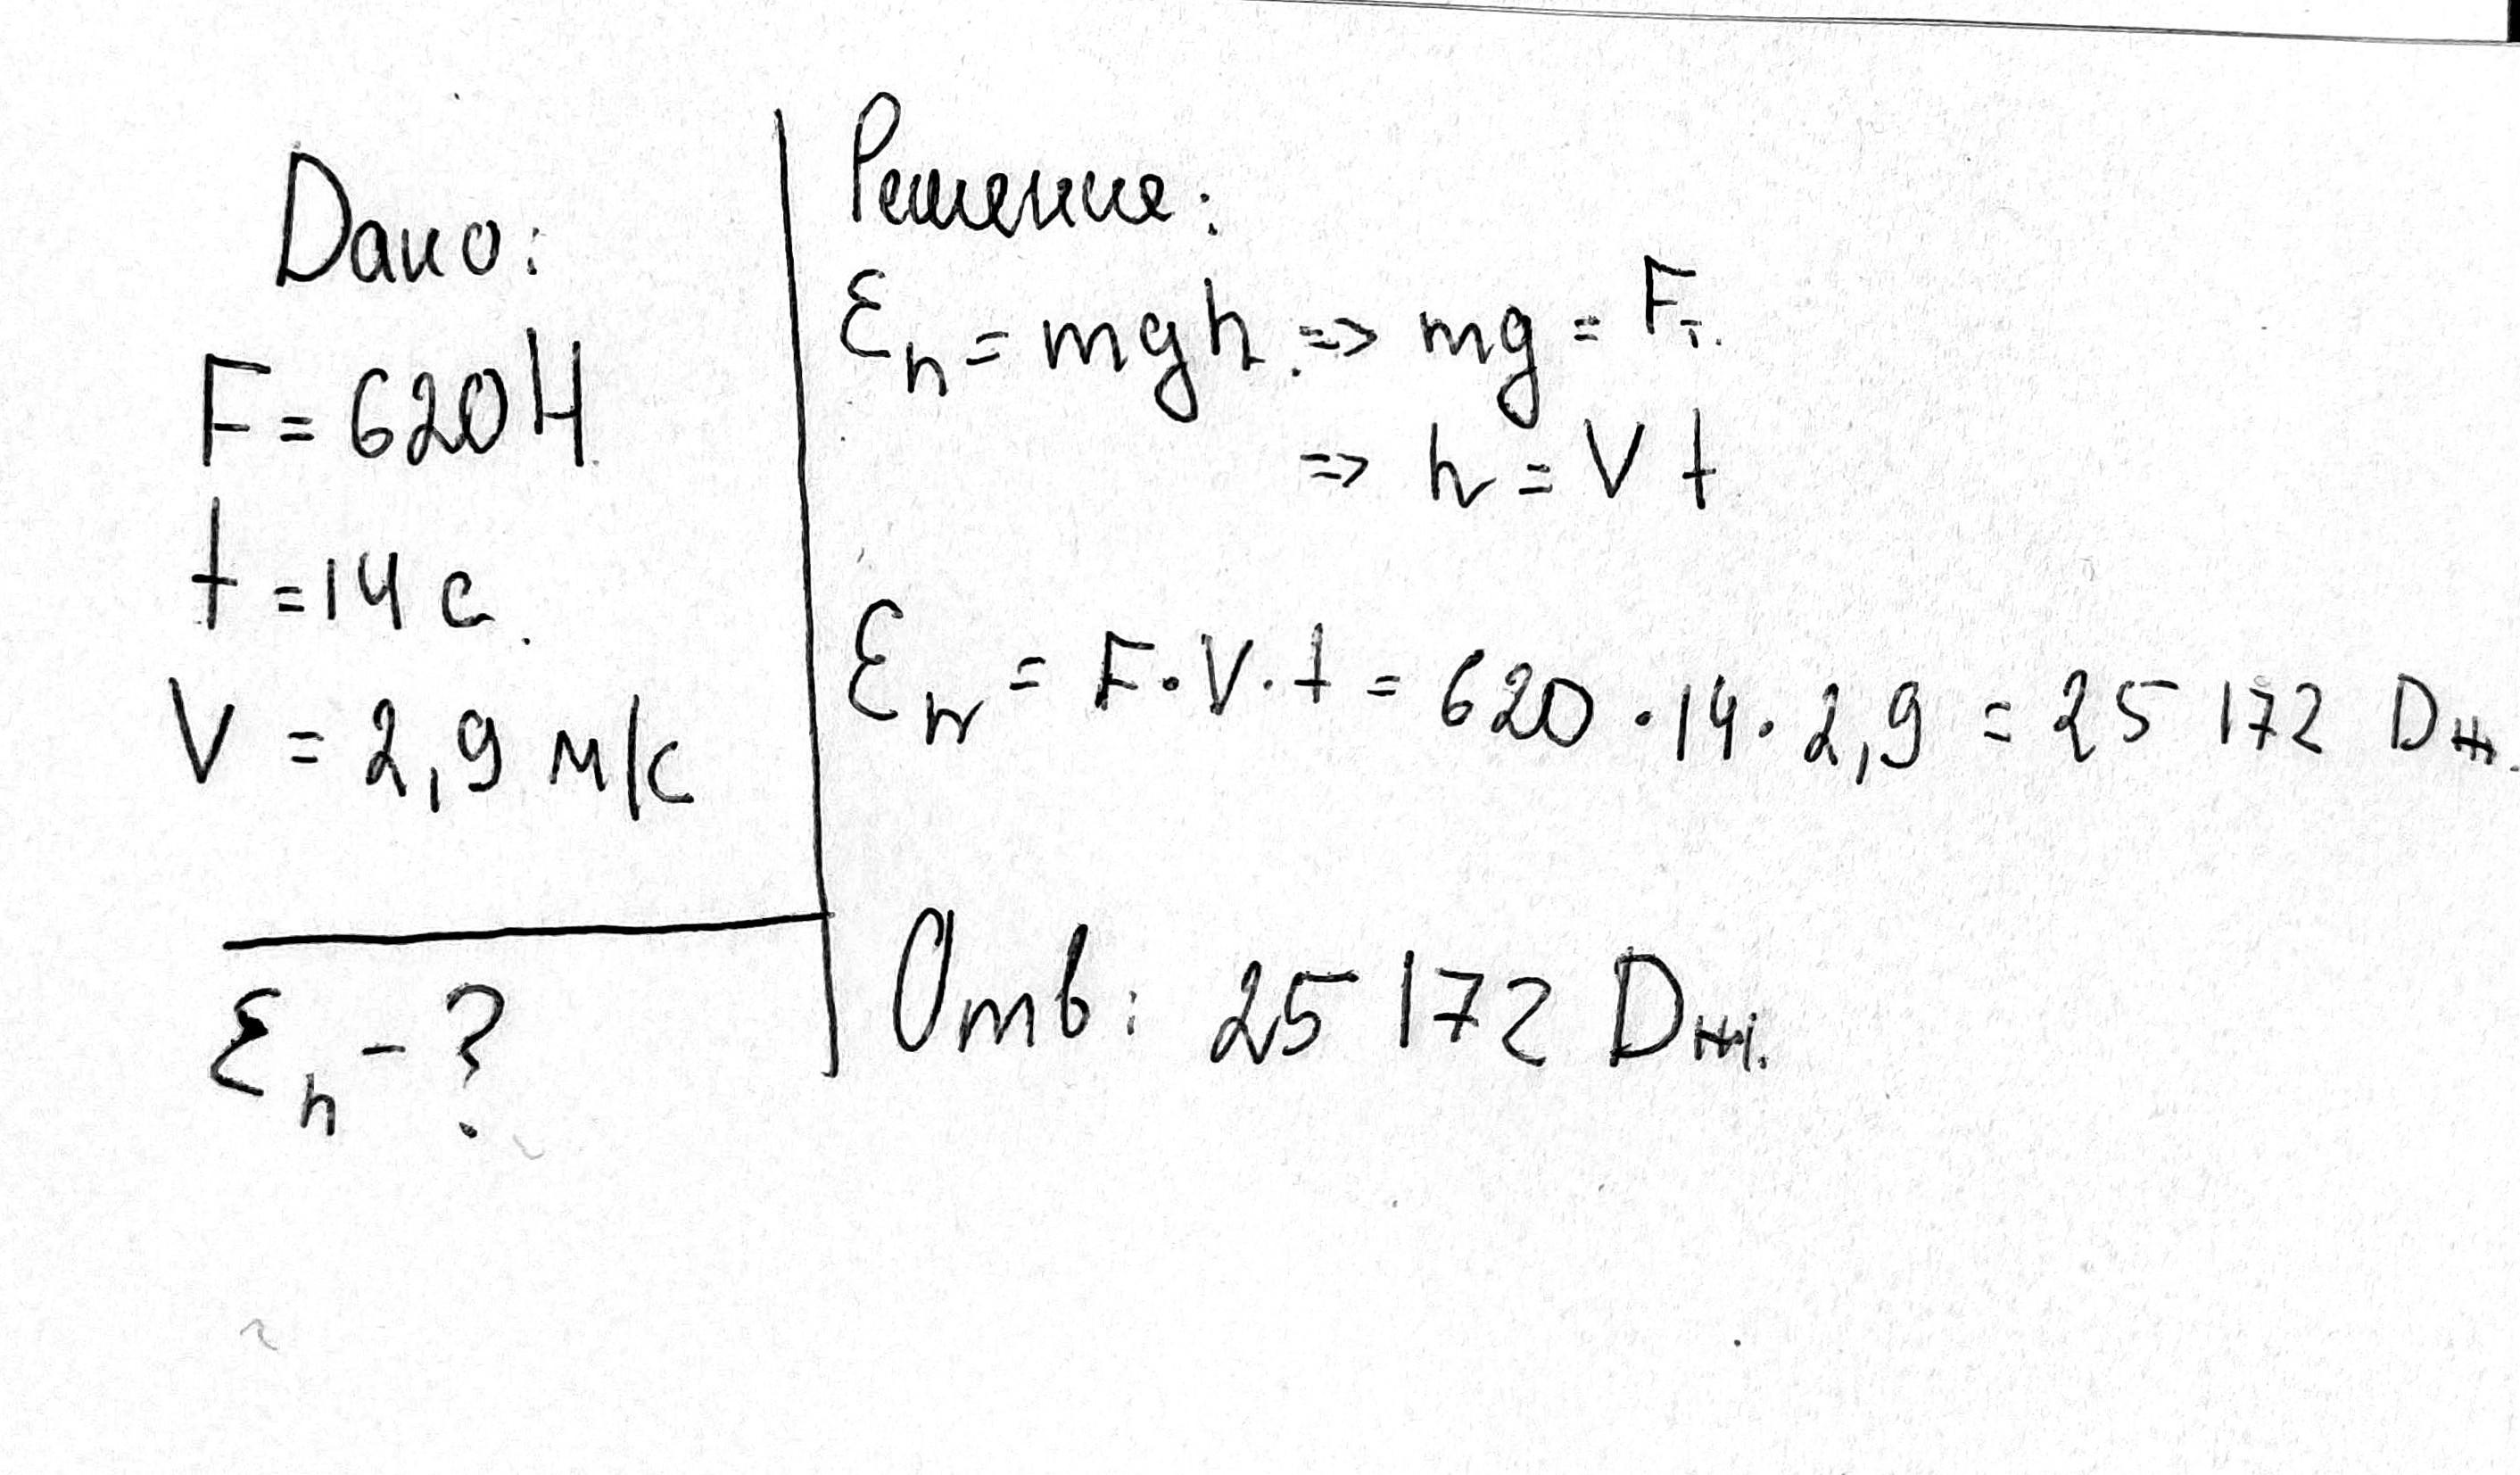 Дано:
F = 620 Н
t = 14 с.
V = 2,9 м/с
Eп - ?
Решение:
Eп = mgh. => mg = Fт.
=> h = V t
Eп = F · V · t = 620 · 14 · 2,9 = 25 172 Dж.
Отв: 25 172 Dж.